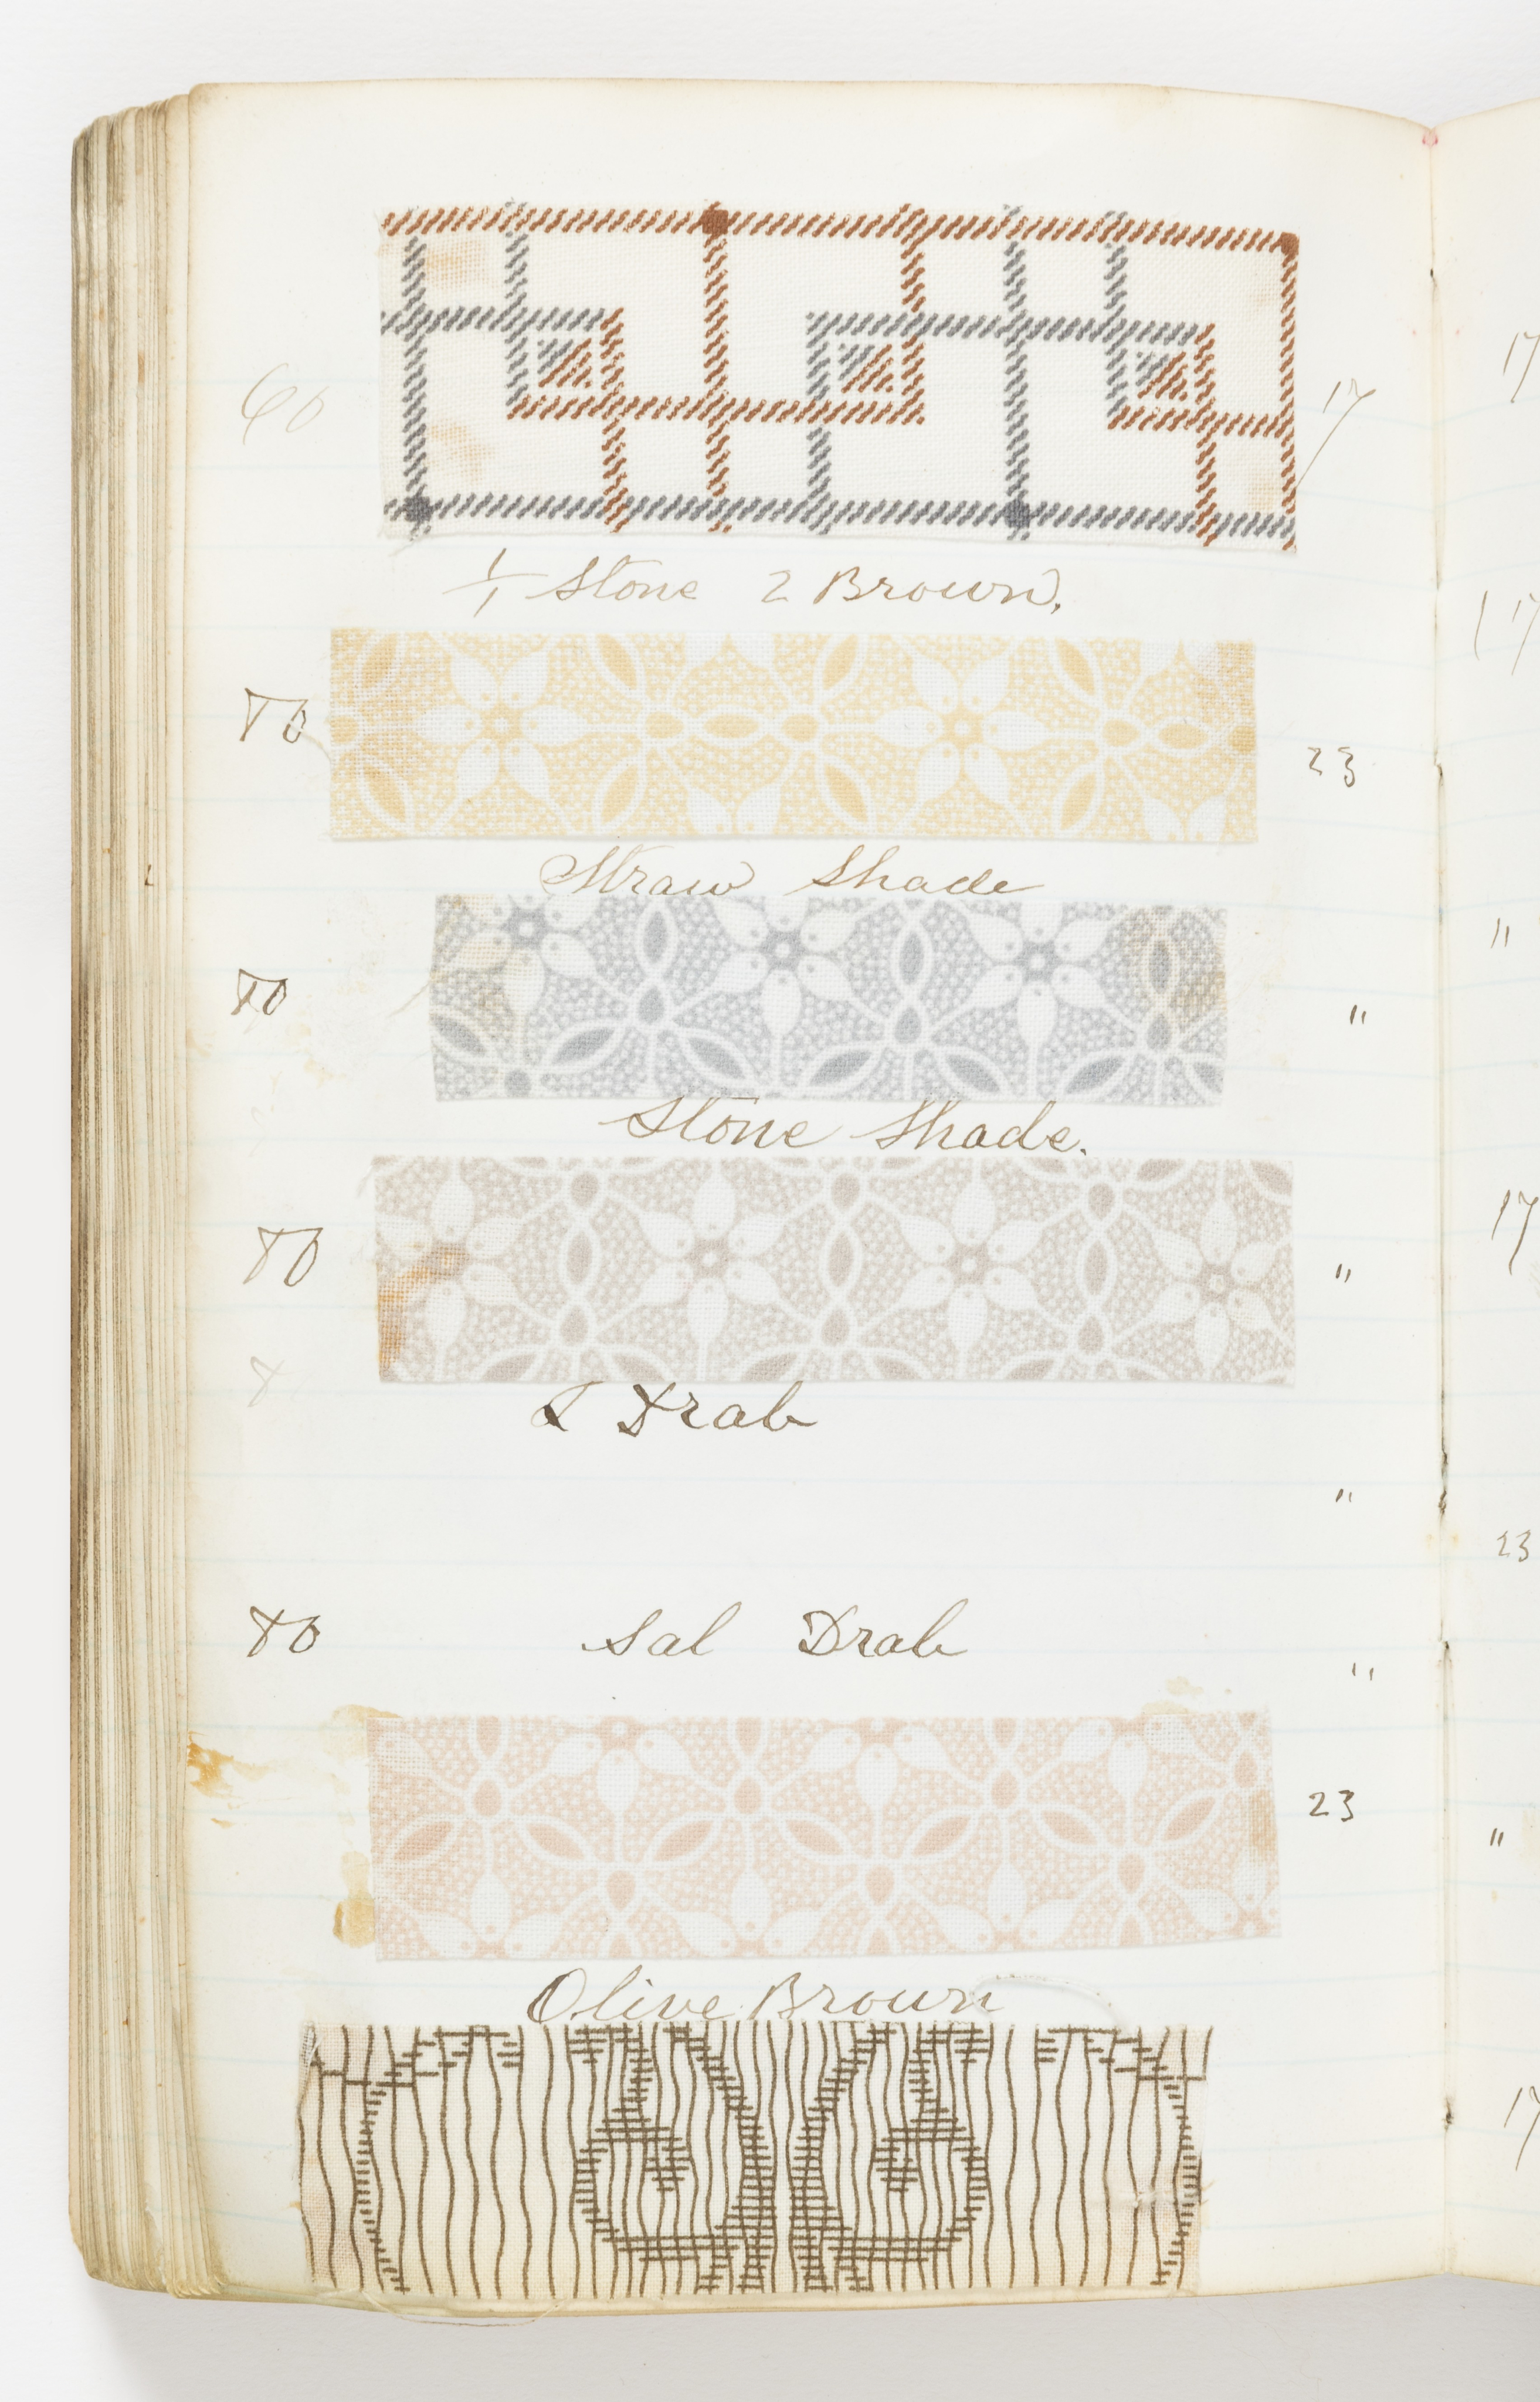 60 17
1/1 Stone 2 Brown.
80 23
Straw Shade
80 "
Stone Shade.
80 "
Drab
"
80 Sal Drab
"
23
Olive Brown
17
17
"
17
23
"
17